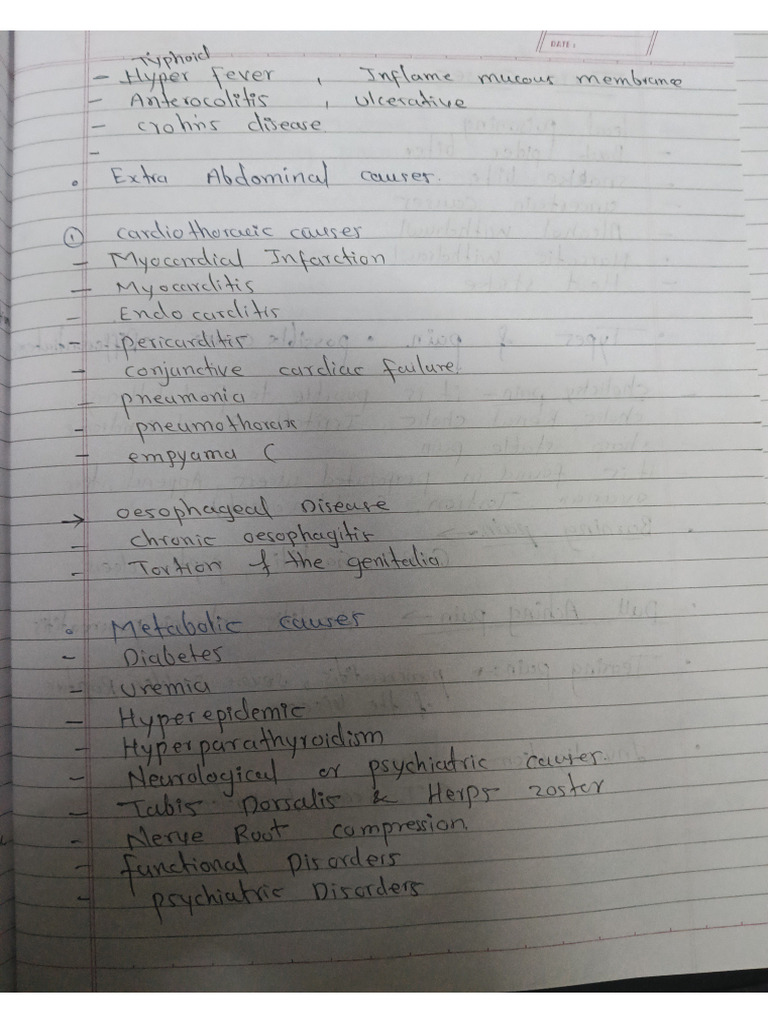 DATE :
Typhoid
- Hyper Fever , Inflame mucous membrane
- Anterocolitis , ulcerative
- crohn's disease
-
• Extra Abdominal causes.
① cardiothoracic causes
- Myocardial Infarction
- Myocarditis
- Endo carditis
- pericarditis
- conjunctive cardiac failure
- pneumonia
- pneumothorax
- empyama (
→ oesophageal Disease
- chronic oesophagitis
- Tortion of the genitalia
• Metabolic causes
- Diabetes
- uremia
- Hyperepidemic
- Hyperparathyroidism
- Neurological or psychiatric causes.
- Tabis Dorsalis & Herps zoster
- Nerve Root compression
- functional Disorders
- psychiatric Disorders